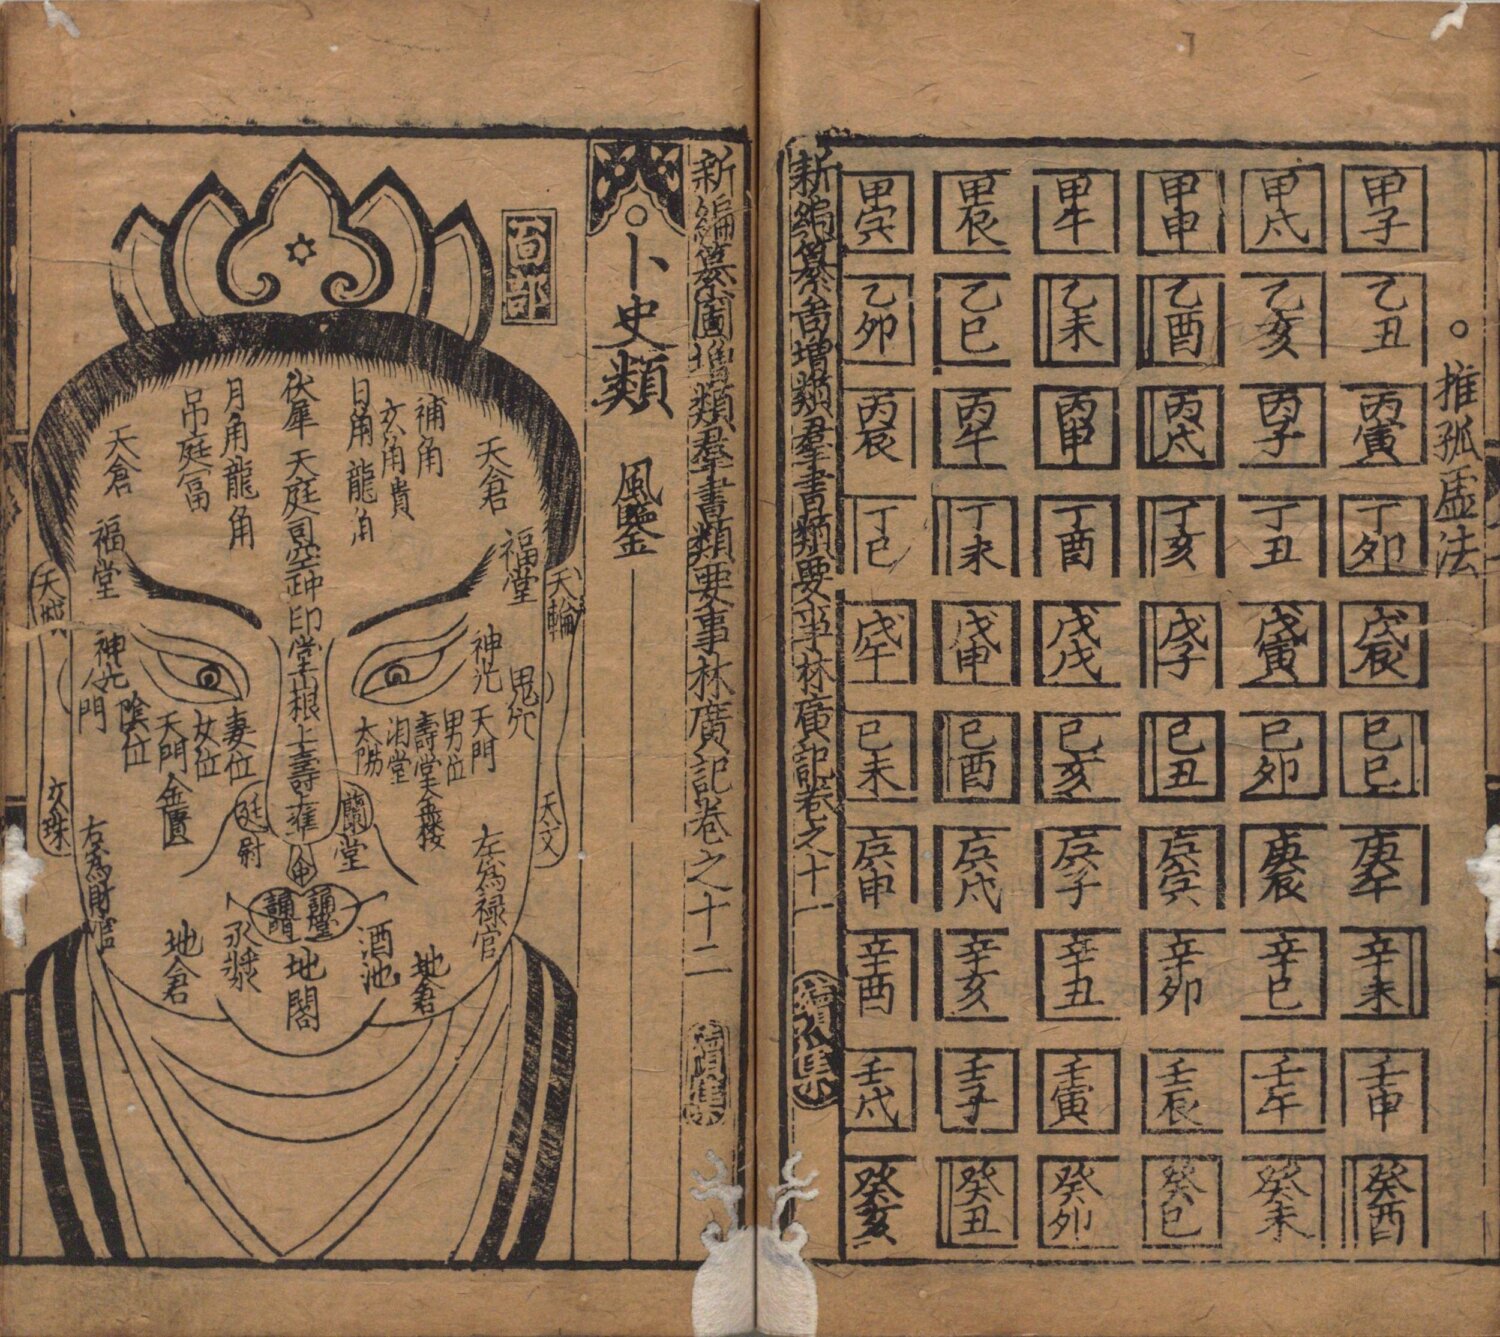 ○推孤虛法
甲子 乙丑 丙寅 丁卯 戊辰 己巳 庚午 辛未 壬申 癸酉
甲戌 乙亥 丙子 丁丑 戊寅 己卯 庚辰 辛巳 壬午 癸未
甲申 乙酉 丙戌 丁亥 戊子 己丑 庚寅 辛卯 壬辰 癸巳
甲午 乙未 丙申 丁酉 戊戌 己亥 庚子 辛丑 壬寅 癸卯
甲辰 乙巳 丙午 丁未 戊申 己酉 庚戌 辛亥 壬子 癸丑
甲寅 乙卯 丙辰 丁巳 戊午 己未 庚申 辛酉 壬戌 癸亥
新編纂圖增類羣書類要事林廣記卷之十一 續集
新編纂圖增類羣書類要事林廣記卷之十二 續集
○卜史類 風鑒
百部
天輪
天文
福堂
鬼穴
天倉
神光
天門
左為祿官
補角
男位
地倉
玄角貴
壽堂
日角龍角
淚堂
太陽
酒池
蘭堂
伏犀天庭司空
印堂
根上壽準
地閣
月角龍角
妻位
廷尉
承漿
吊庭富
女位
天門
金匱
地倉
天倉
陰位
福堂
神光
人門
右為財
天城
玄珠